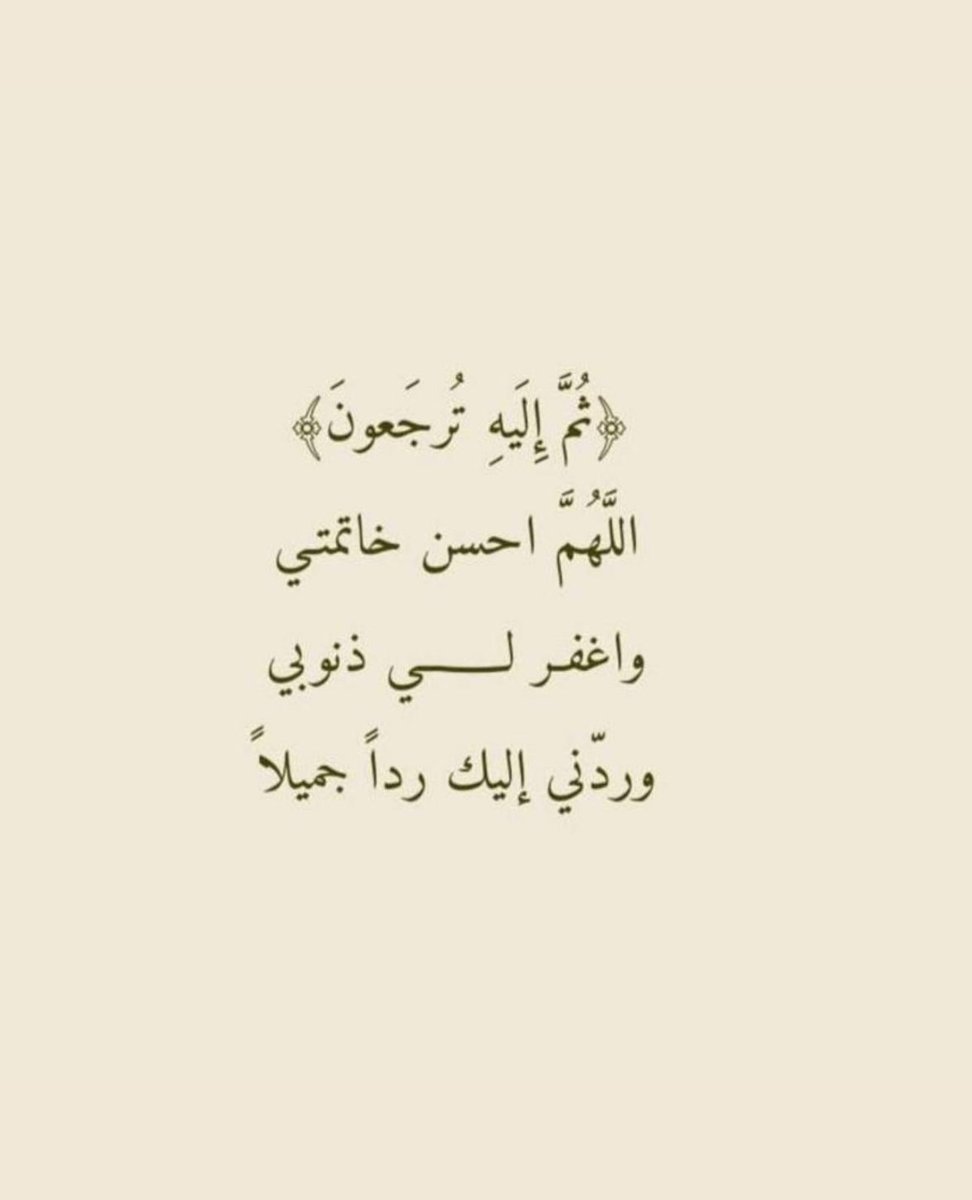 ﴿ثُمَّ إِلَيهِ تُرجَعونَ﴾
اللَّهُمَّ احسن خاتمتي
واغفر لـــــي ذنوبي
وردّني إليك رداً جميلاً